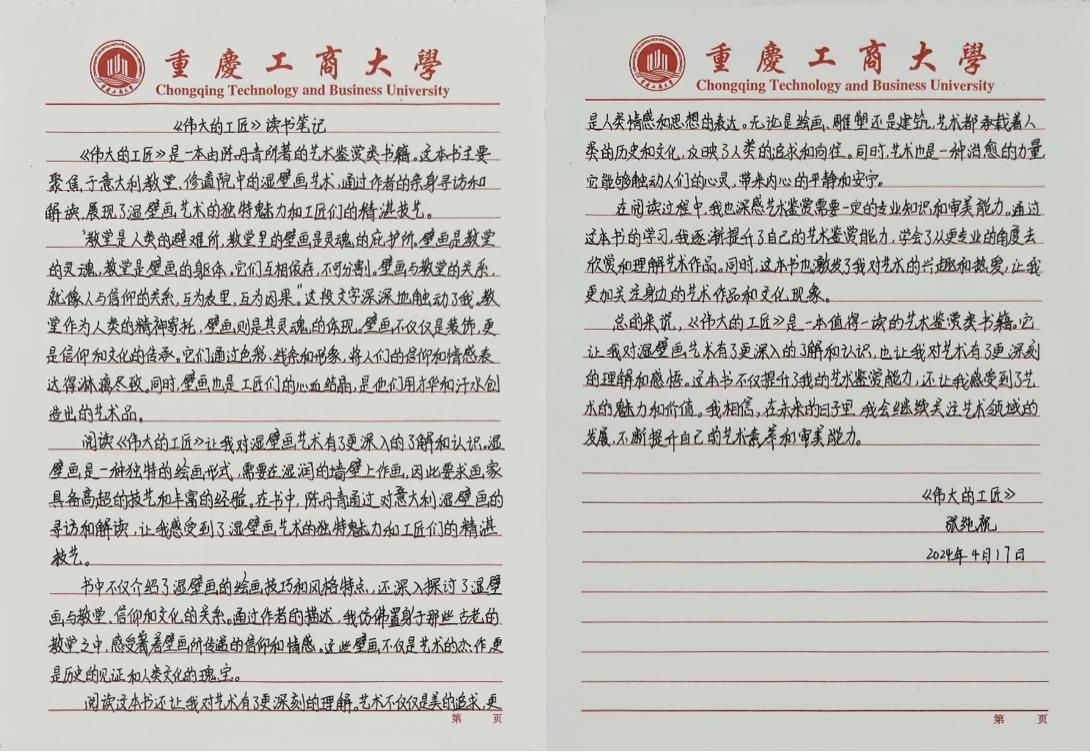 重慶工商大學
Chongqing Technology and Business University
《伟大的工匠》读书笔记
《伟大的工匠》是一本由陈丹青所著的艺术鉴赏类书籍。这本书主要
聚焦于意大利教堂、修道院中的湿壁画艺术，通过作者的亲身寻访和
解读，展现了湿壁画艺术的独特魅力和工匠们的精湛技艺。
“教堂是人类的避难所，教堂里的壁画是灵魂的庇护所。壁画是教堂
的灵魂，教堂是壁画的躯体。它们互相依存，不可分割。壁画与教堂的关系，
就像人与信仰的关系，互为表里，互为因果。”这段文字深深地触动了我。教
堂作为人类的精神寄托，壁画则是其灵魂的体现。壁画不仅仅是装饰，更
是信仰和文化的传承。它们通过色彩、线条和形象，将人们的信仰和情感表
达得淋漓尽致。同时，壁画也是工匠们的心血结晶，是他们用才华和汗水创
造出的艺术品。
阅读《伟大的工匠》让我对湿壁画艺术有了更深入的了解和认识。湿
壁画是一种独特的绘画形式，需要在湿润的墙壁上作画，因此要求画家
具备高超的技艺和丰富的经验。在书中，陈丹青通过对意大利湿壁画的
寻访和解读，让我感受到了湿壁画艺术的独特魅力和工匠们的精湛
技艺。
书中不仅介绍了湿壁画的绘画技巧和风格特点，还深入探讨了湿壁
画与教堂、信仰和文化的关系。通过作者的描述，我仿佛置身于那些古老的
教堂之中，感受着壁画所传递的信仰和情感。这些壁画不仅是艺术的杰作，更
是历史的见证和人类文化的瑰宝。
阅读这本书还让我对艺术有了更深刻的理解。艺术不仅仅是美的追求，更
第 页
重慶工商大學
Chongqing Technology and Business University
是人类情感和思想的表达。无论是绘画、雕塑还是建筑，艺术都承载着人
类的历史和文化，反映了人类的追求和向往。同时，艺术也是一种治愈的力量
它能够触动人们的心灵，带来内心的平静和安宁。
在阅读过程中，我也深感艺术鉴赏需要一定的专业知识和审美能力。通过
这本书的学习，我逐渐提升了自己的艺术鉴赏能力，学会了从更专业的角度去
欣赏和理解艺术作品。同时，这本书也激发了我对艺术的兴趣和热爱，让我
更加关注身边的艺术作品和文化现象。
总的来说，《伟大的工匠》是一本值得一读的艺术鉴赏类书籍。它
让我对湿壁画艺术有了更深入的了解和认识，也让我对艺术有了更深刻
的理解和感悟。这本书不仅提升了我的艺术鉴赏能力，还让我感受到了艺
术的魅力和价值。我相信，在未来的日子里，我会继续关注艺术领域的
发展，不断提升自己的艺术素养和审美能力。
《伟大的工匠》
张纯祝
2024年4月17日
第 页